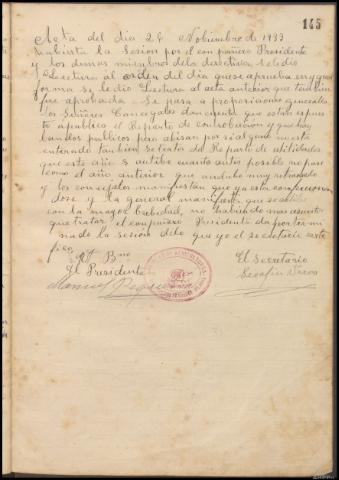 145
Acta del dia 28 Nobiembre de 1933
Habierta la Sesion por el compañero Presidente
y los demas miembros de la directiva se le dio
Lectura al orden del dia que se aprueba en
forma se le dio Lectura al acta anterior que tambien
fue aprobada = Se pasa a proposiciones generales
los Señores Concejales dan cuenta que estan espues
to apublico el Reparto de Contribucion y que hay
bandos publicos para abisar por si alguno quiere
enterarse tambien se trata del Reparto de utilidades
que este año se actibe cuanto antes posible no pase
como el año anterior que andubo muy retrasado
y los concejales manifiestan que ya esta
dose y la general manifiesta que se actibe
con la mayor brebedad, no habiendo mas asuntos
que tratar el compañero Presidente da por termi
nado la sesion de lo que yo el secretario certi
fico
Vº Bno
El Presidente
El Secretario
Manuel
Serafin